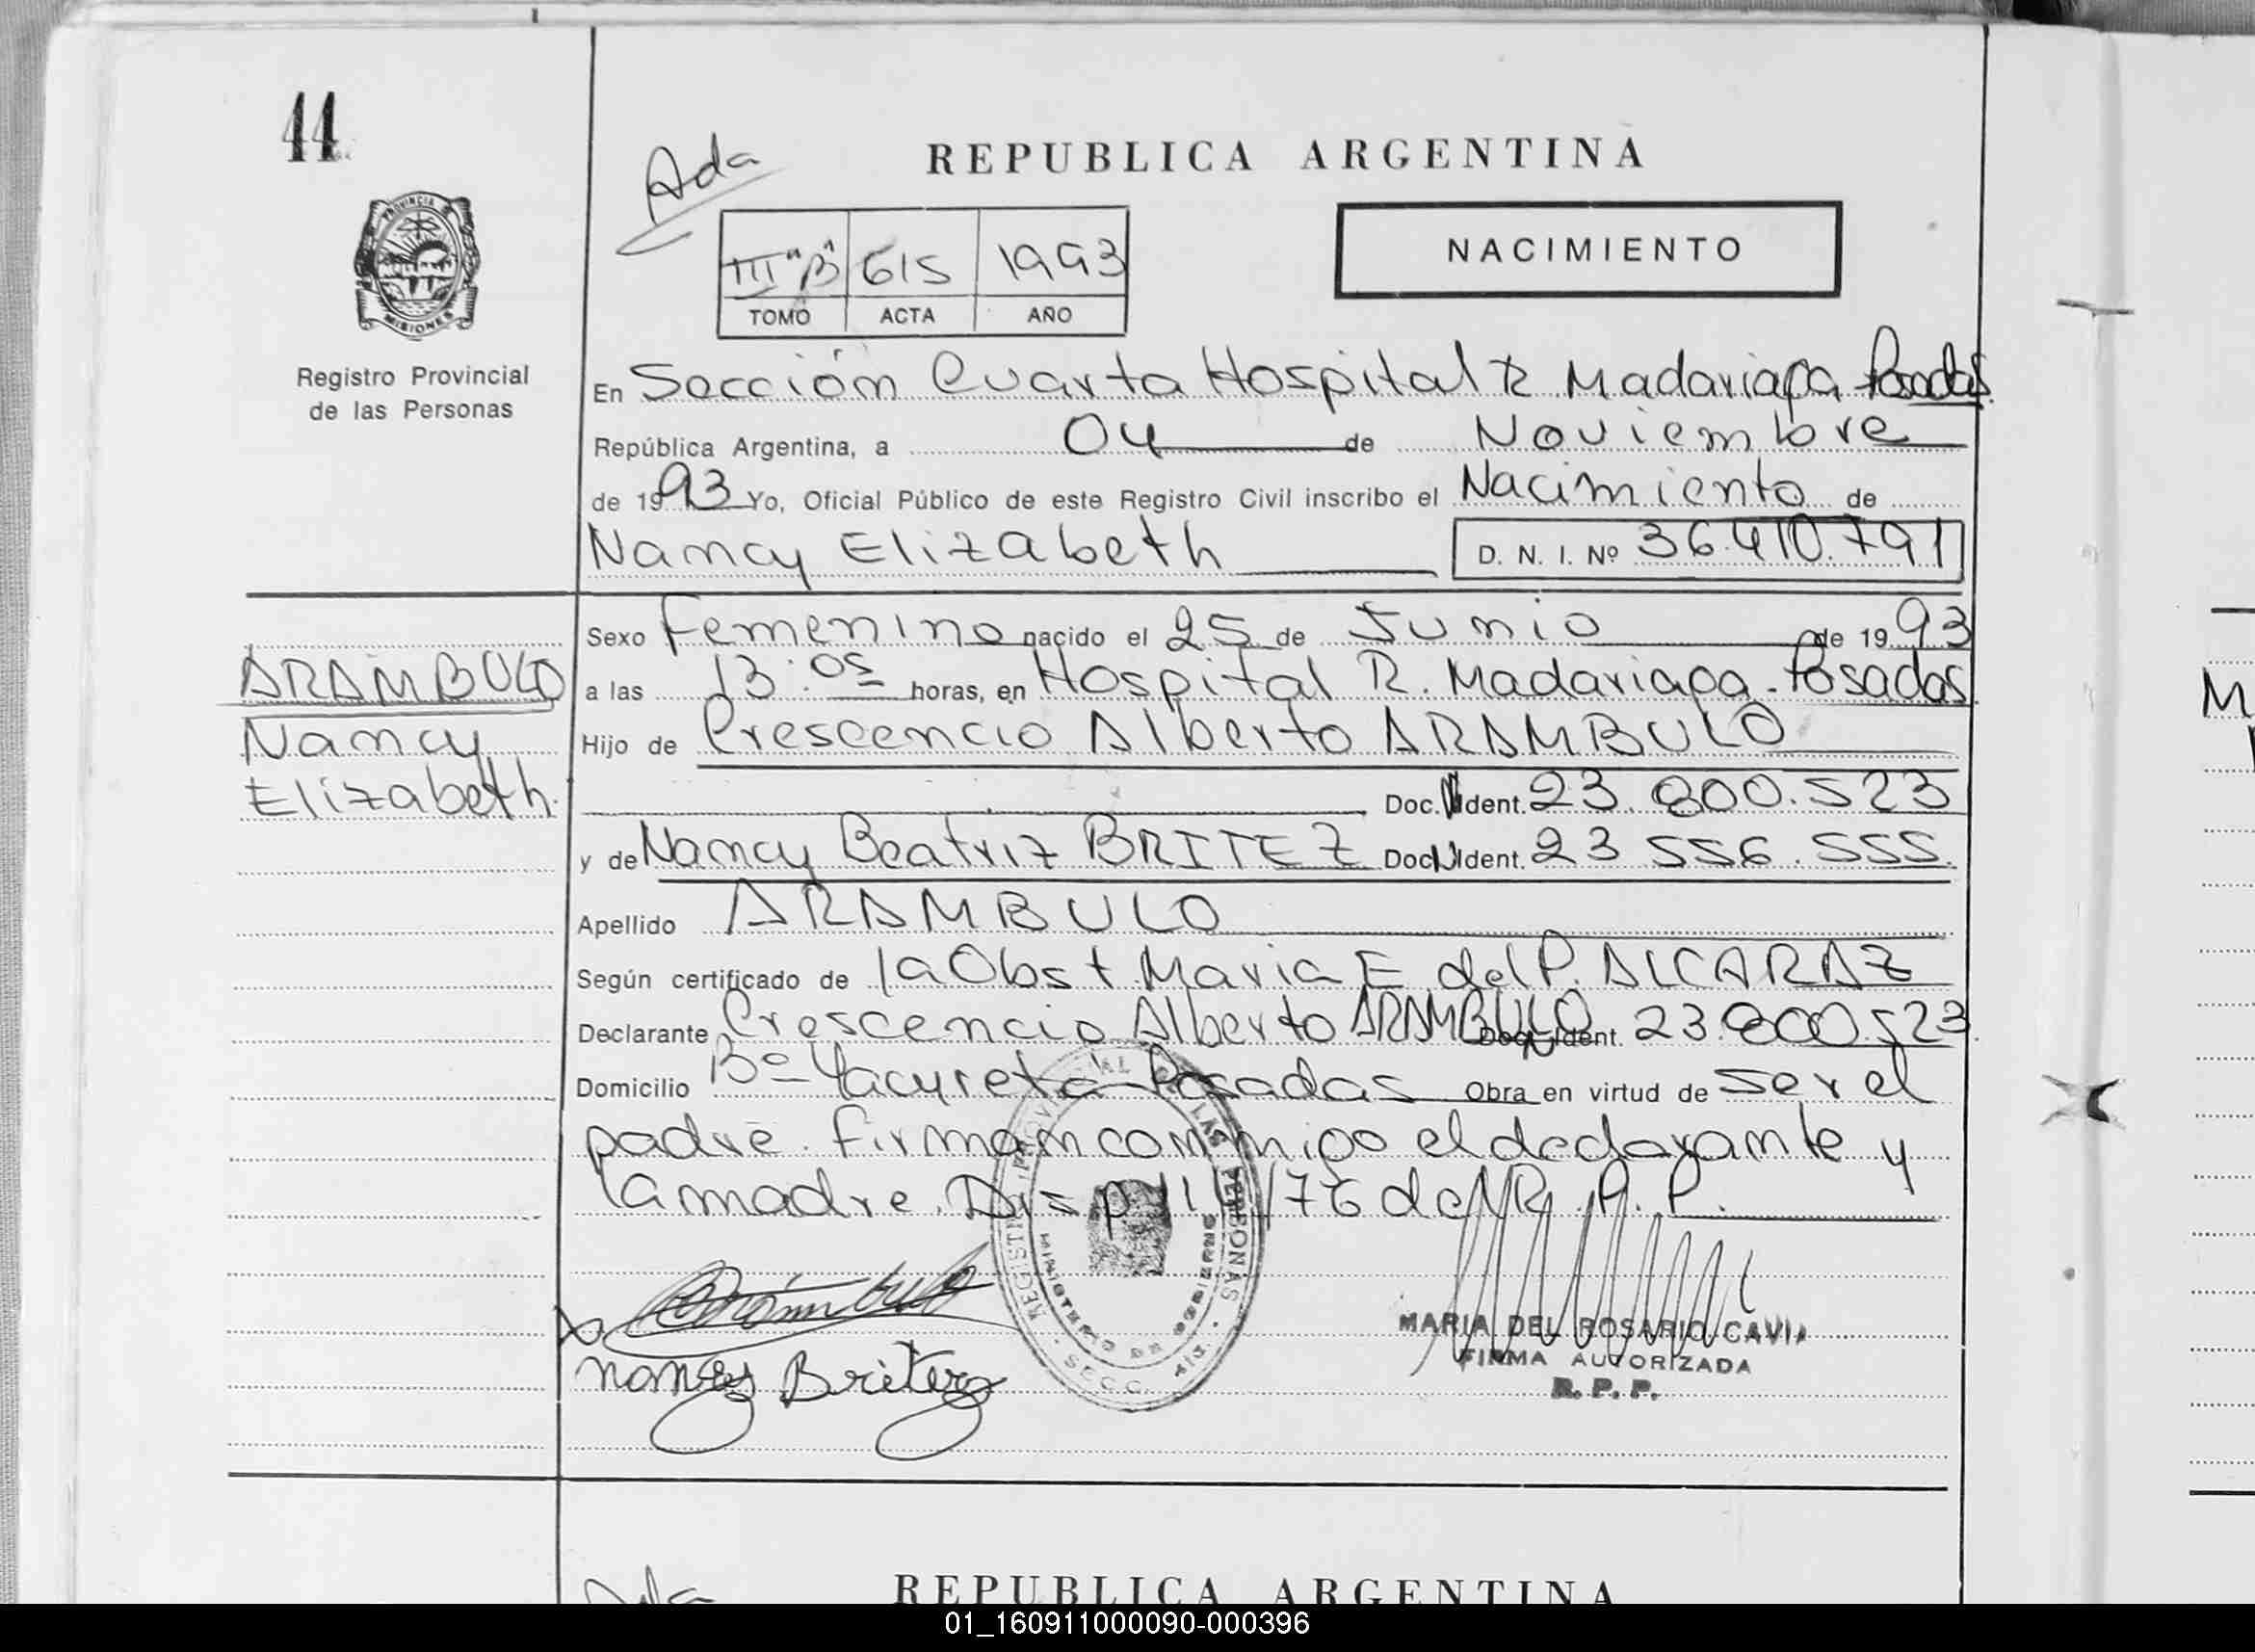 44
Ada
REPUBLICA ARGENTINA
PROVINCIA DE MISIONES
Registro Provincial
de las Personas
III "B" 615 1993
TOMO ACTA AÑO
NACIMIENTO
En Sección Cuarta Hospital R Madariaga Posadas
República Argentina, a 04 de Noviembre
de 1993 Yo, Oficial Público de este Registro Civil inscribo el Nacimiento de
Nancy Elizabeth D. N. I. Nº 36.410.791
Sexo Femenino nacido el 25 de Junio de 1993
ARAMBULO
Nancy
Elizabeth
a las 13:05 horas, en Hospital R. Madariaga - Posadas
Hijo de Crescencio Alberto ARAMBULO
Doc. Ident. 23.800.523
y de Nancy Beatriz BRITEZ Doc. Ident. 23 556.555
Apellido ARAMBULO
Según certificado de la Obst Maria E del P. ALCARAZ
Declarante Crescencio Alberto ARAMBULO Doc. Ident. 23.800.523
Domicilio Bº Yacyreta Posadas Obra en virtud de ser el
padre. Firman conmigo el declarante y
la madre. Disp 11/76 del R. P. P.
REGISTRO PROVINCIAL DE LAS PERSONAS
MINISTERIO DE GOBIERNO
SECC. 4ta.
Arambulo
Nancy Britez
MARIA DEL ROSARIO CAVIA
FIRMA AUTORIZADA
R. P. P.
REPUBLICA ARGENTINA
01_160911000090-000396